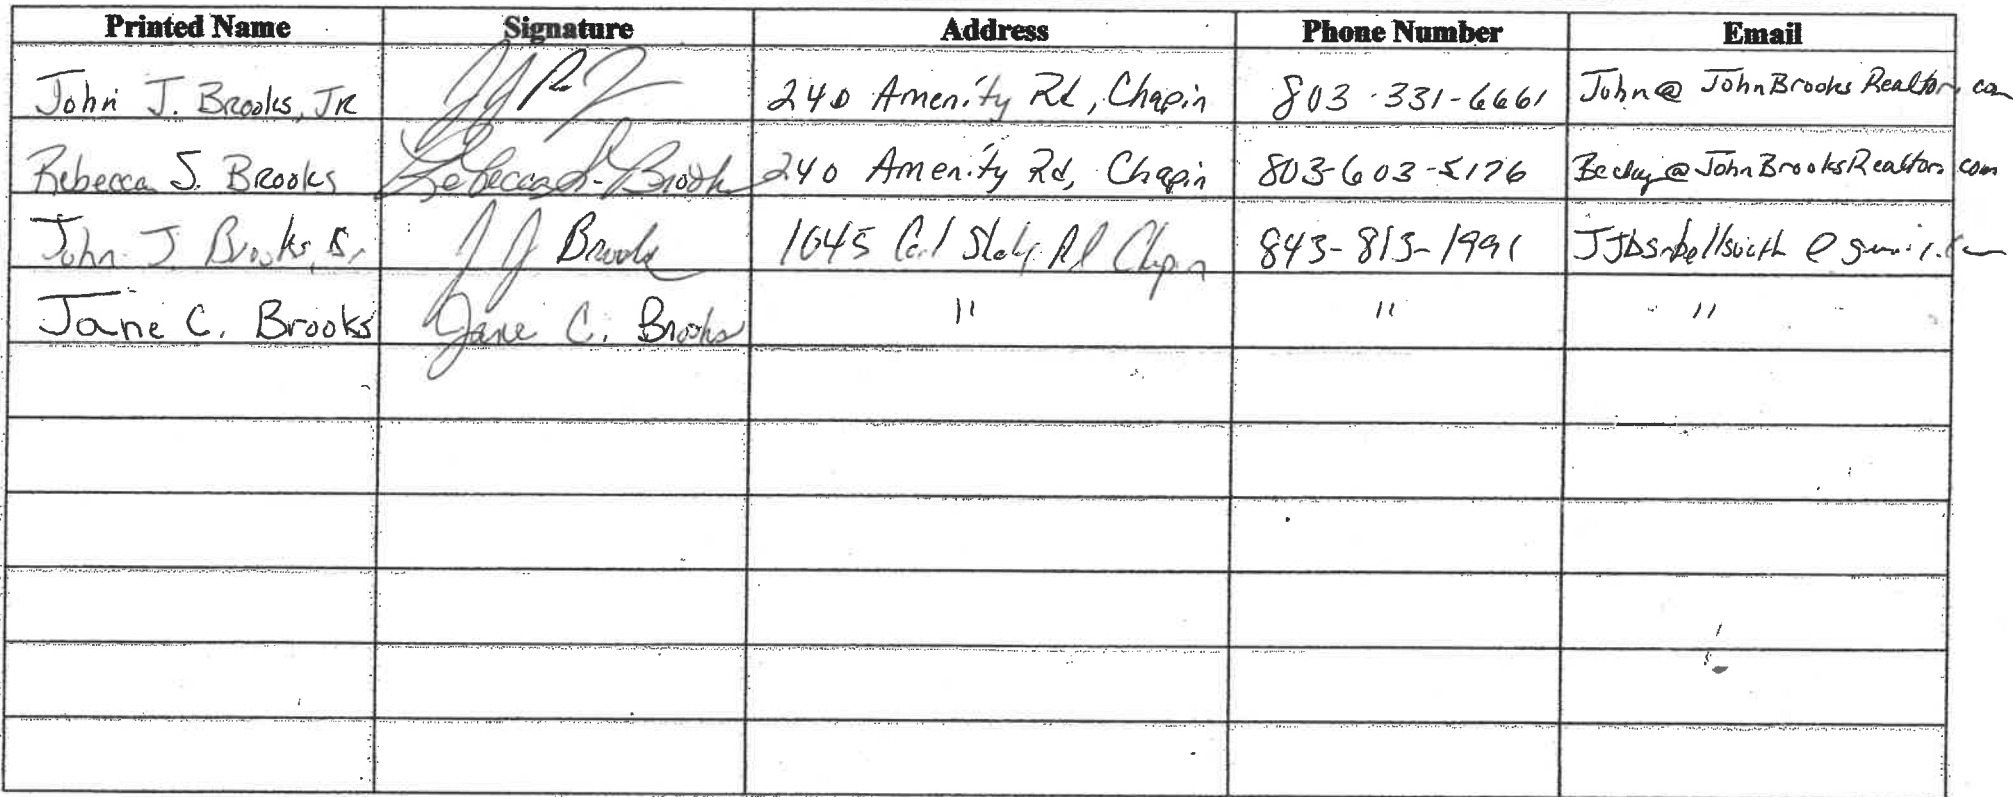 Printed Name Signature Address Phone Number Email
John J. Brooks, JR 240 Amenity Rd, Chapin 803-331-6661 John@JohnBrooksRealtor.com
Rebecca S. Brooks Rebecca S. Brooks 240 Amenity Rd, Chapin 803-603-5176 Becky@JohnBrooksRealtor.com
John J Brooks, Sr J J Brooks 1045 Rd Chapin 843-813-1991
Jane C. Brooks Jane C. Brooks " " "